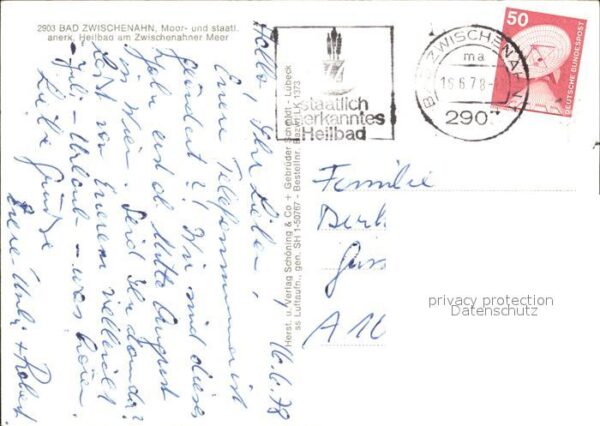 2903 BAD ZWISCHENAHN, Moor- und staatl.
anerk. Heilbad am Zwischenahner Meer
Hallo, Ihr Lieben!
16.6.78
Eure Telefonnummer ist
geändert?! Wir sind dieses
Jahr erst ab Mitte August
in Wien. Seid Ihr da?
Lasst von Eurem vielleicht
Juli-Urlaub - was hören.
Liebe Grüße
Eure Uli + Robert
Herst. u. Verlag Schöning & Co + Gebrüder Schmidt - Lübeck
ss Luftaufn., gen. SH 1-50767 - Bestellnr. BadZw LK 1373
staatlich
anerkanntes
Heilbad
BAD ZWISCHENAHN
ma
16.6.78
290
50
DEUTSCHE BUNDESPOST
Familie
A 10
privacy protection
Datenschutz